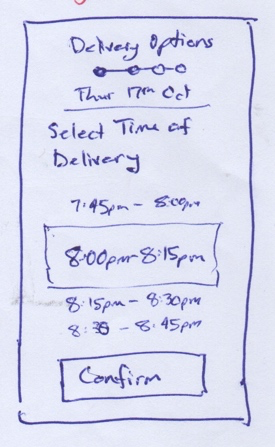 Delivery Options
Thur 17th Oct
Select Time of
Delivery
7:45pm - 8:00pm
8:00pm-8:15pm
8:15pm - 8:30pm
8:30 - 8:45pm
Confirm